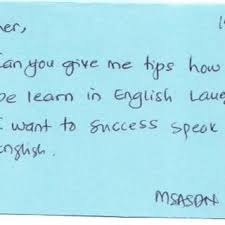 her,
can you give me tips how
be learn in English Lau
I want to success speak
english.
MSASDN